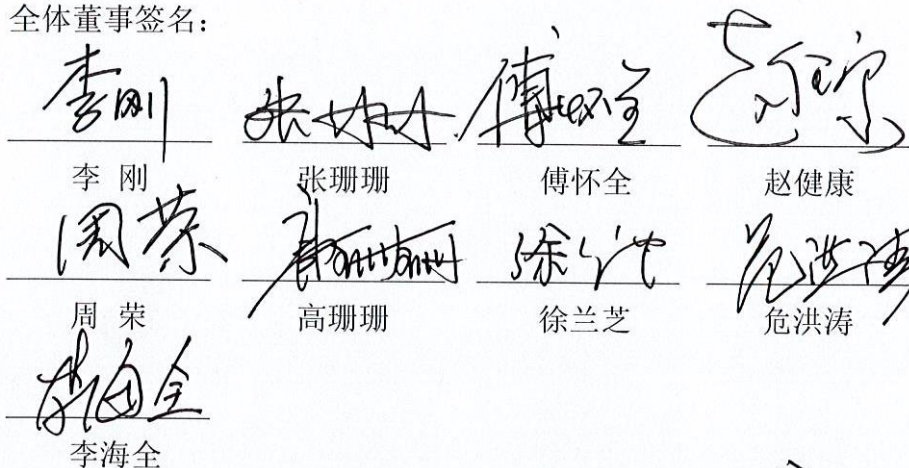 全体董事签名：
李刚 张珊珊 傅怀全
李 刚 张珊珊 傅怀全 赵健康
周荣
周 荣 高珊珊 徐兰芝 危洪涛
李海全